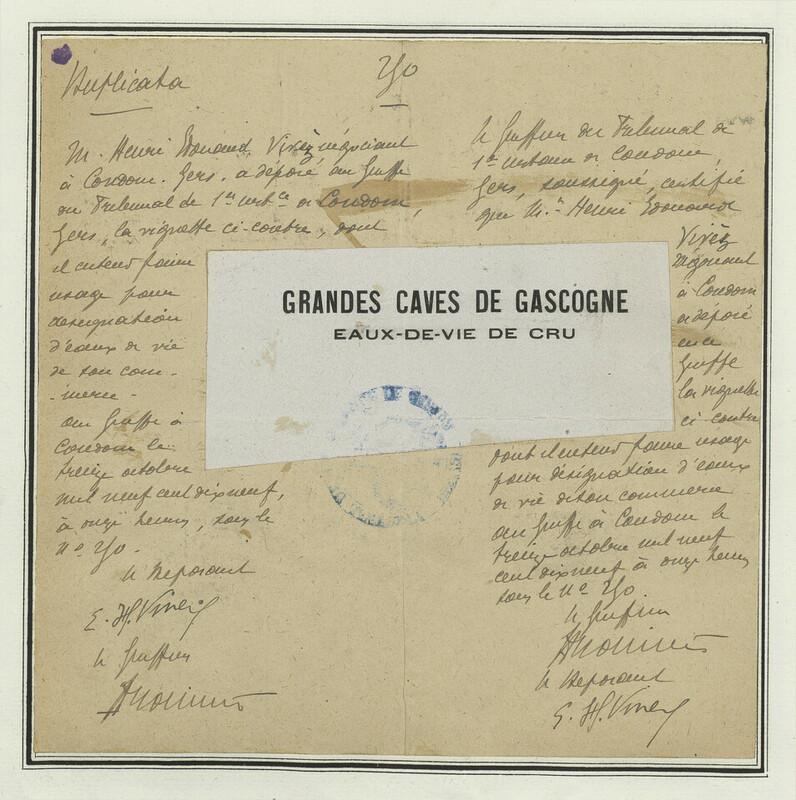 Duplicata
250
M. Henri Edouard Vivès, négociant
à Condom. Gers. a déposé au Greffe
du Tribunal de 1ère inst.ce de Condom,
Gers, la vignette ci-contre, dont
il entend faire
usage pour
désignation
d'eaux de vie
de son com-
-merce -
au Greffe à
Condom le
treize octobre
mil neuf cent dix neuf,
à onze heures, sous le
No 250.
Le Déposant
E. H. Vivès
Le Greffier
GRANDES CAVES DE GASCOGNE
EAUX-DE-VIE DE CRU
Le Greffier du Tribunal de
1ère instance de Condom,
Gers, soussigné, certifie
que M. Henri Edouard
Vivès
négociant
à Condom
a déposé
au
Greffe
la vignette
ci-contre
dont il entend faire usage
pour désignation d'eaux
de vie de son commerce
au Greffe à Condom le
treize octobre mil neuf
cent dix neuf à onze heures
sous le No 250.
Le Greffier
Le Déposant
E. H. Vivès